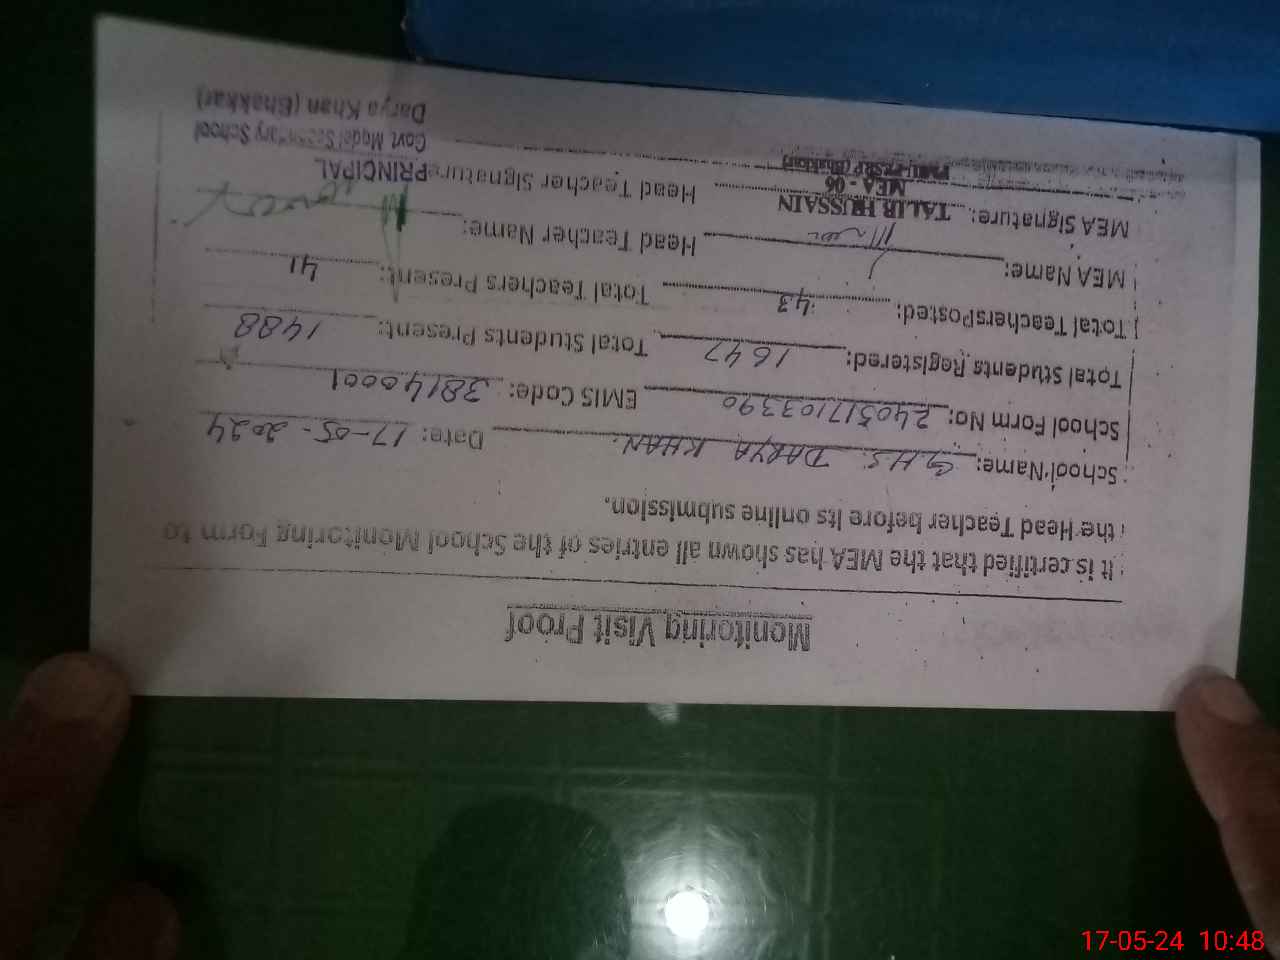 Monitoring Visit Proof
It is certified that the MEA has shown all entries of the School Monitoring Form to
the Head Teacher before its online submission.
School Name: G.H.S. DARYA KHAN. Date: 17-05-2024
School Form No: 240517103390 EMIS Code: 38140001
Total Students Registered: 1647 Total Students Present: 1488
Total Teachers Posted: 43 Total Teachers Present: 41
MEA Name: Head Teacher Name:
MEA Signature: TALIB HUSSAIN Head Teacher Signature: PRINCIPAL
MEA - 06 Govt. Model Secondary School
(Bhakkar) Darya Khan (Bhakkar)
17-05-24 10:48